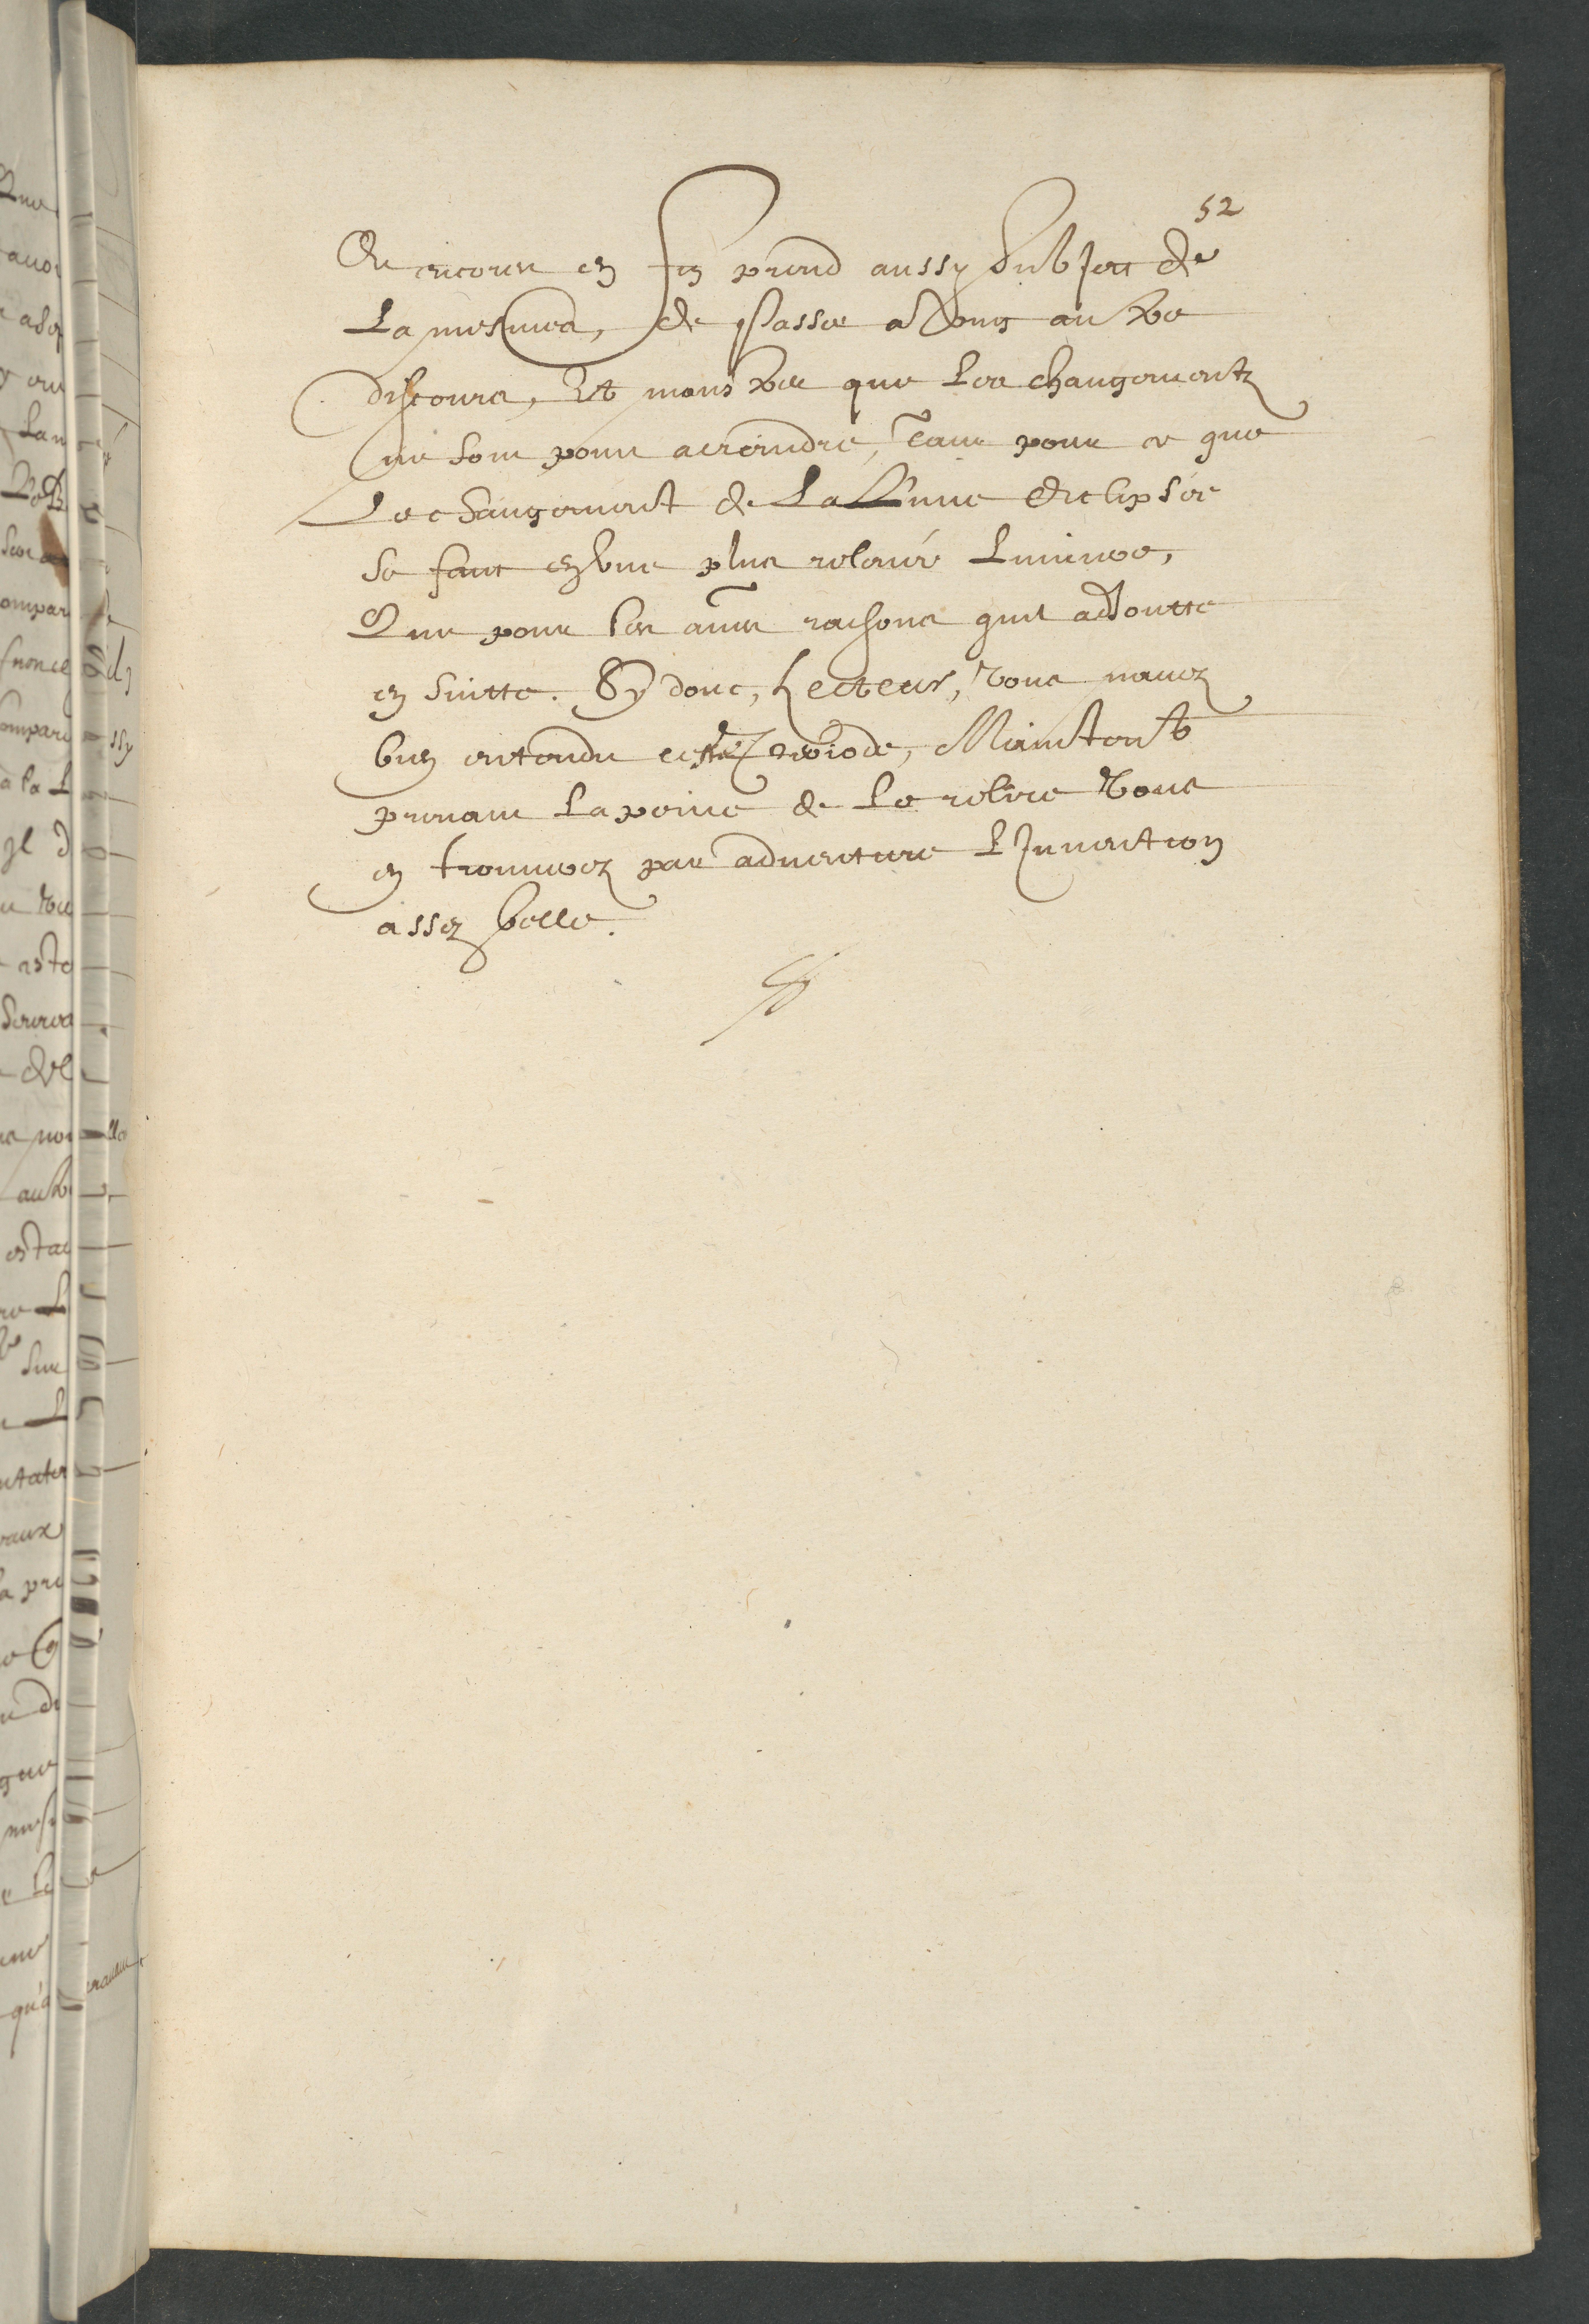 52
Et encore en fin prend aussy subject de
La mesmes, de Passer a Vong aultre
discours, Et monstrer que Les changementz
ne sont pour a craindre, tant pour ce que
Le changement de La Lune Ecclipsée
se faict en vne plus relevée Lumiere,
Que pour les autres raisons quil adiouste
en suitte. Sy donc, Lecteur, vous navez
bien entendu ceste Periode, Maintenant
prenant La peine de Le relire Vous
en trouverez par adventure L'Invention
assez belle.